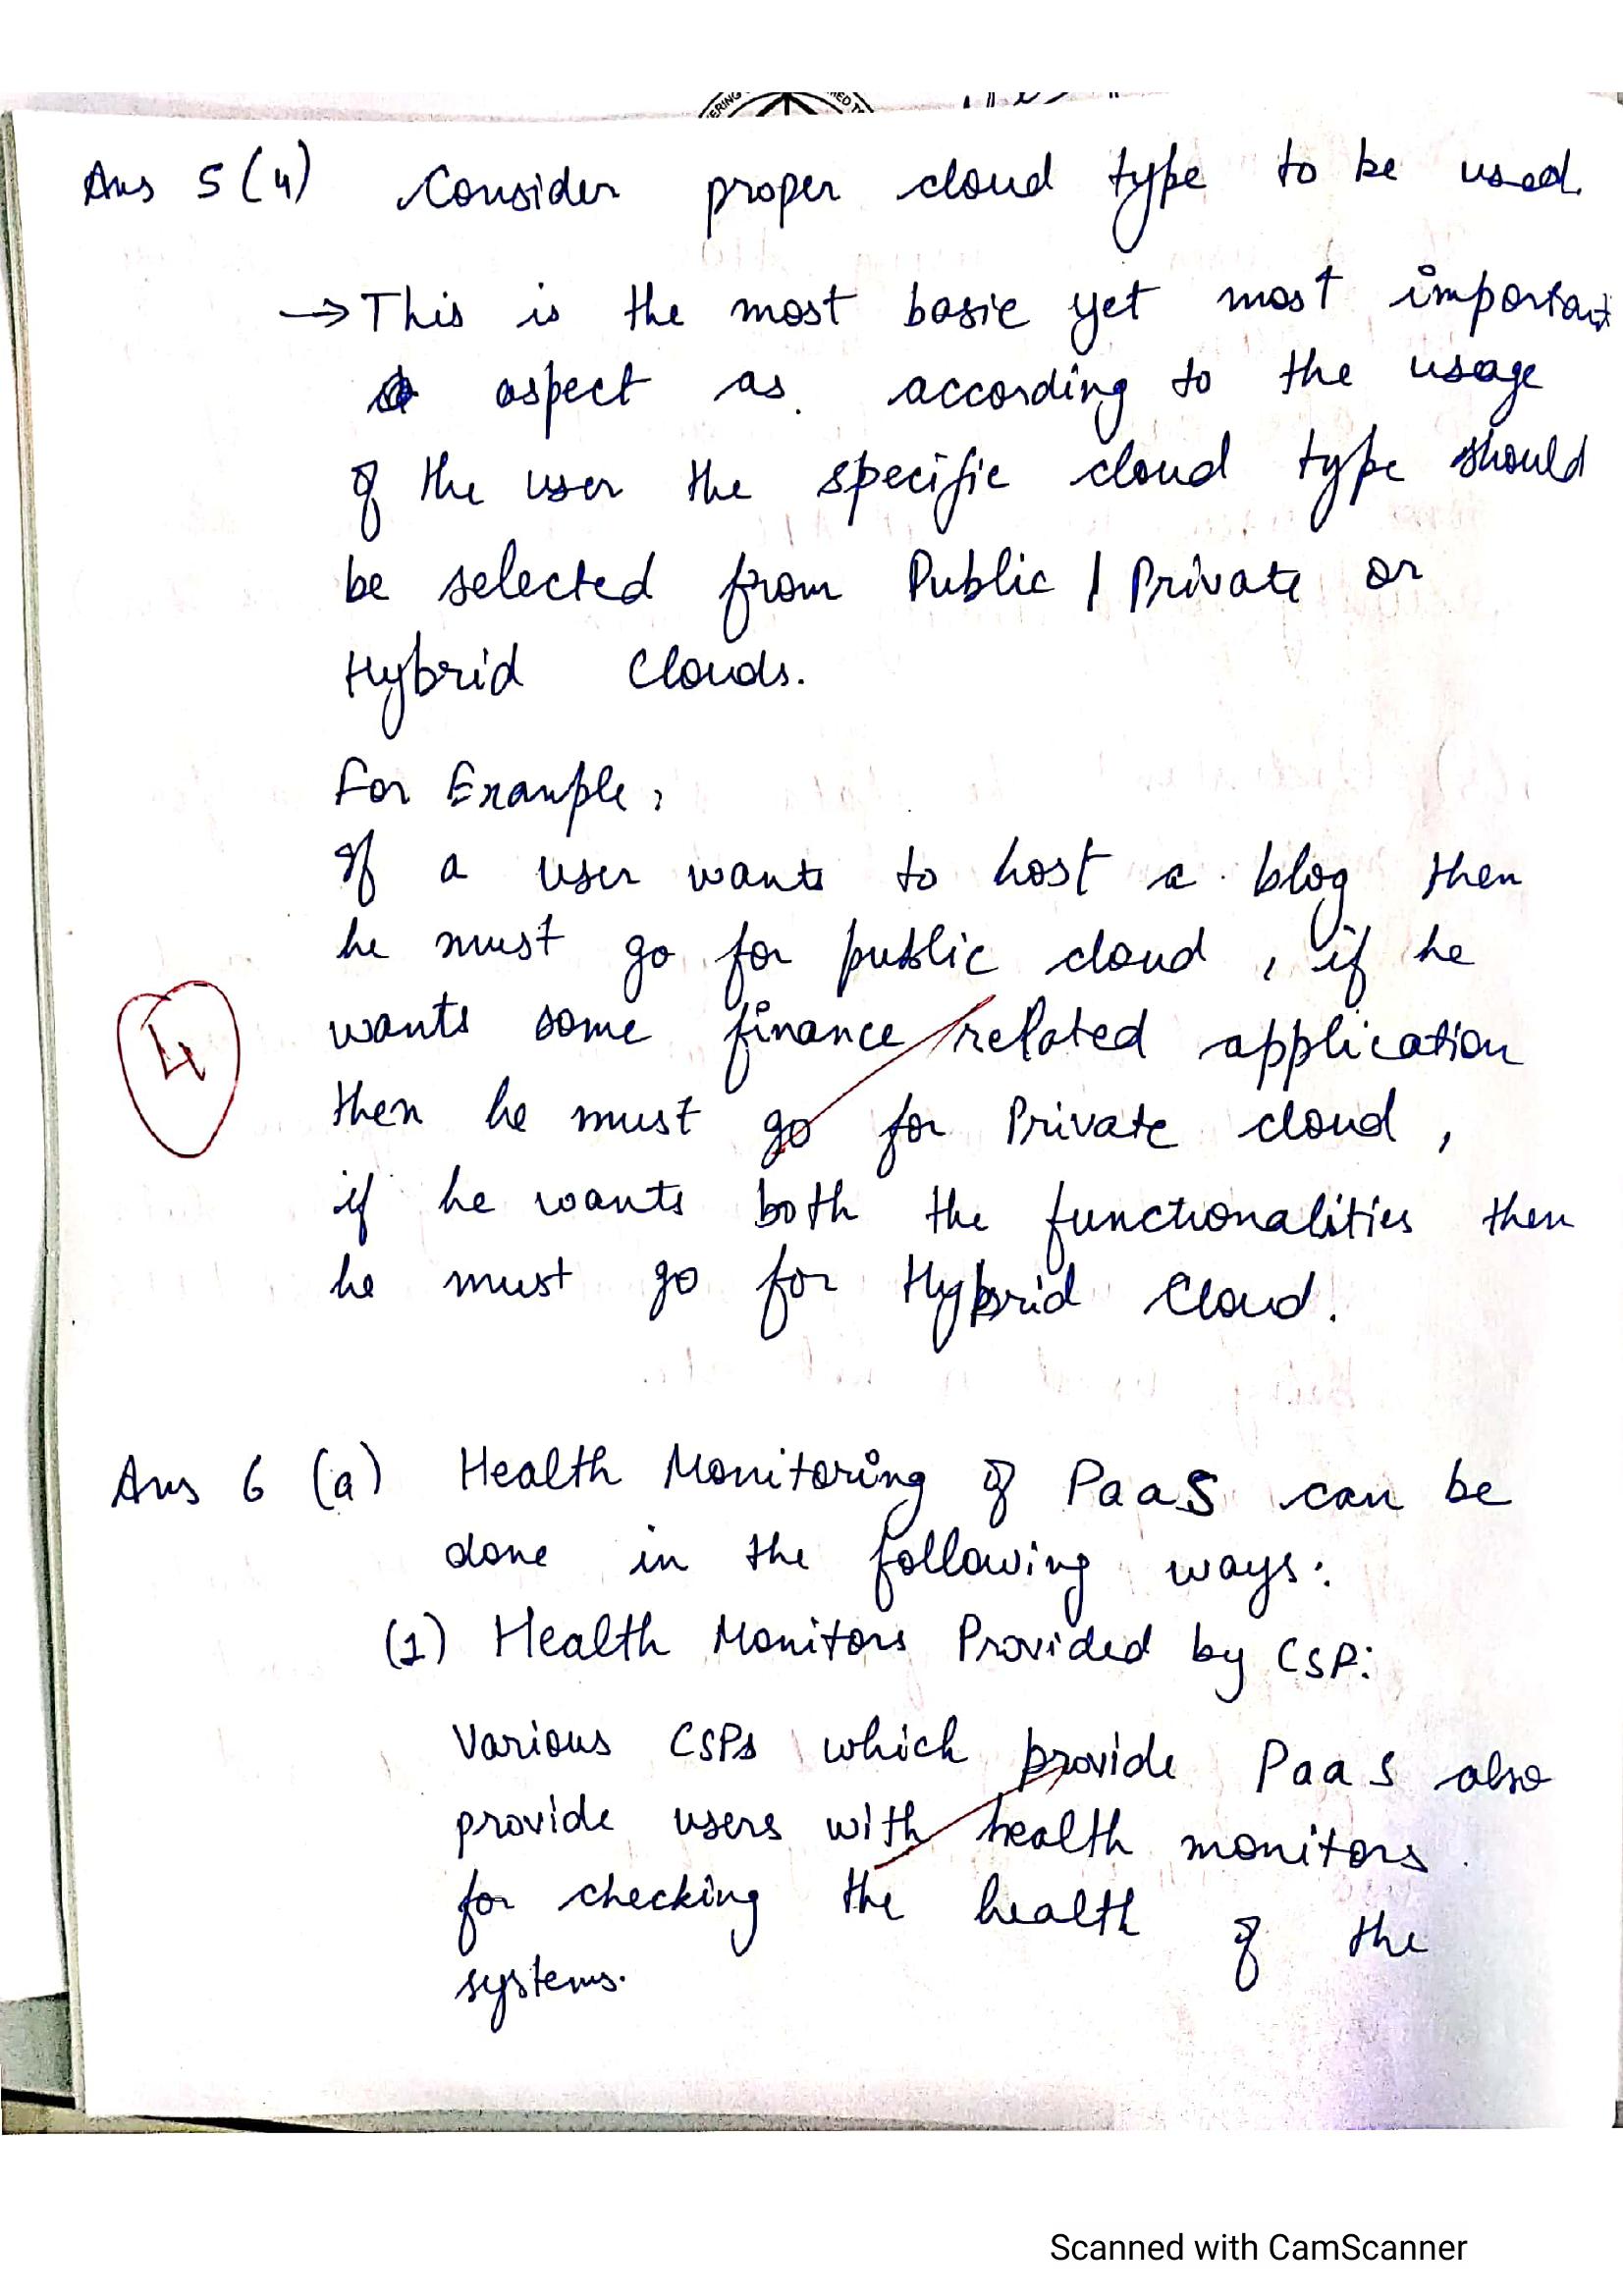 ERING
MED T
Ans 5(4) Consider proper cloud type to be used.
→ This is the most basic yet most important
aspect as according to the usage
of the user the specific cloud type should
be selected from Public / Private or
Hybrid Clouds.
For Example,
If a user wants to host a blog then
he must go for public cloud, if he
wants some finance related application
then he must go for Private cloud,
if he wants both the functionalities then
he must go for Hybrid Cloud.
4
Ans 6 (a) Health Monitoring of PaaS can be
done in the following ways:
(1) Health Monitors Provided by CSP:
Various CSPs which provide PaaS also
provide users with health monitors
for checking the health of the
systems.
Scanned with CamScanner